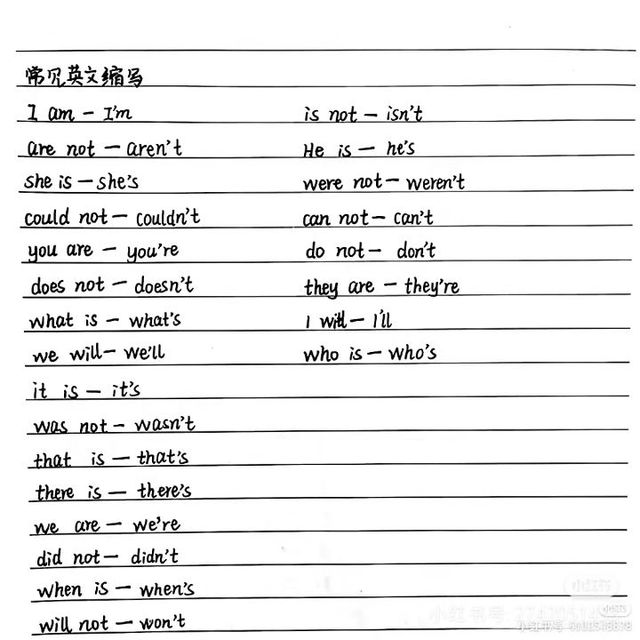 常见英文缩写
I am — I'm
is not — isn't
are not — aren't
He is — he's
she is — she's
were not — weren't
could not — couldn't
can not — can't
you are — you're
do not — don't
does not — doesn't
they are — they're
what is — what's
I will — I'll
we will — we'll
who is — who's
it is — it's
was not — wasn't
that is — that's
there is — there's
we are — we're
did not — didn't
when is — when's
will not — won't
小红书
小红书号